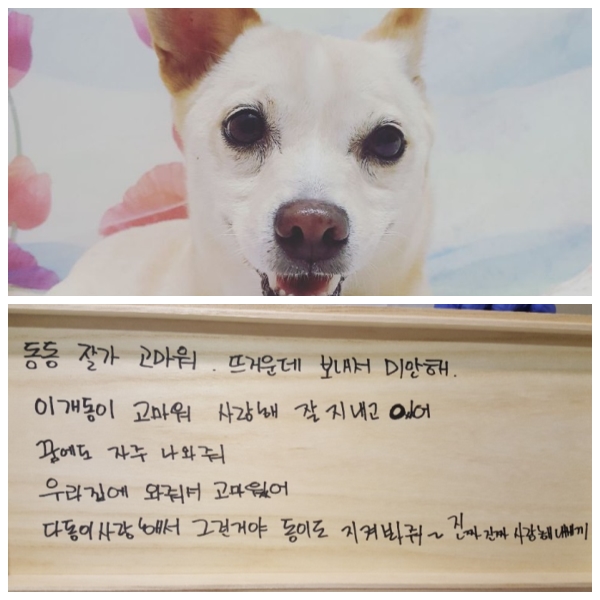 동동 잘가 고마워. 뜨거운데 보내서 미안해.
이개동이 고마워 사랑해 잘 지내고 있어
꿈에도 자주 나와줘
우리집에 와줘서 고마웠어
다 동이 사랑해서 그런거야 동이도 지켜봐줘~ 진짜 진짜 사랑해 내새끼